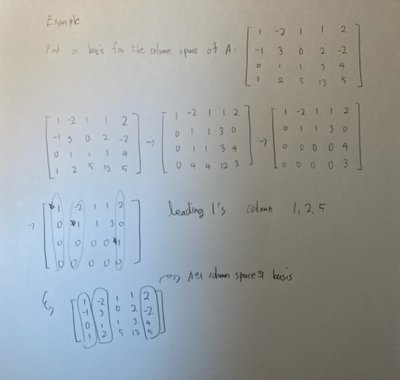 Example
Find a basis for the column space of A:
1 -2 1 1 2
-1 3 0 2 -2
0 1 1 3 4
1 2 5 13 5
1 -2 1 1 2
-1 3 0 2 -2
0 1 1 3 4
1 2 5 13 5
→
1 -2 1 1 2
0 1 1 3 0
0 1 1 3 4
0 4 4 12 3
→
1 -2 1 1 2
0 1 1 3 0
0 0 0 0 4
0 0 0 0 3
→
*1 -2 1 1 2
0 *1 1 3 0
0 0 0 0 *1
0 0 0 0 0
leading 1's column 1, 2, 5
1 -2 1 1 2
-1 3 0 2 -2
0 1 1 3 4
1 2 5 13 5
→ A의 column space의 basis